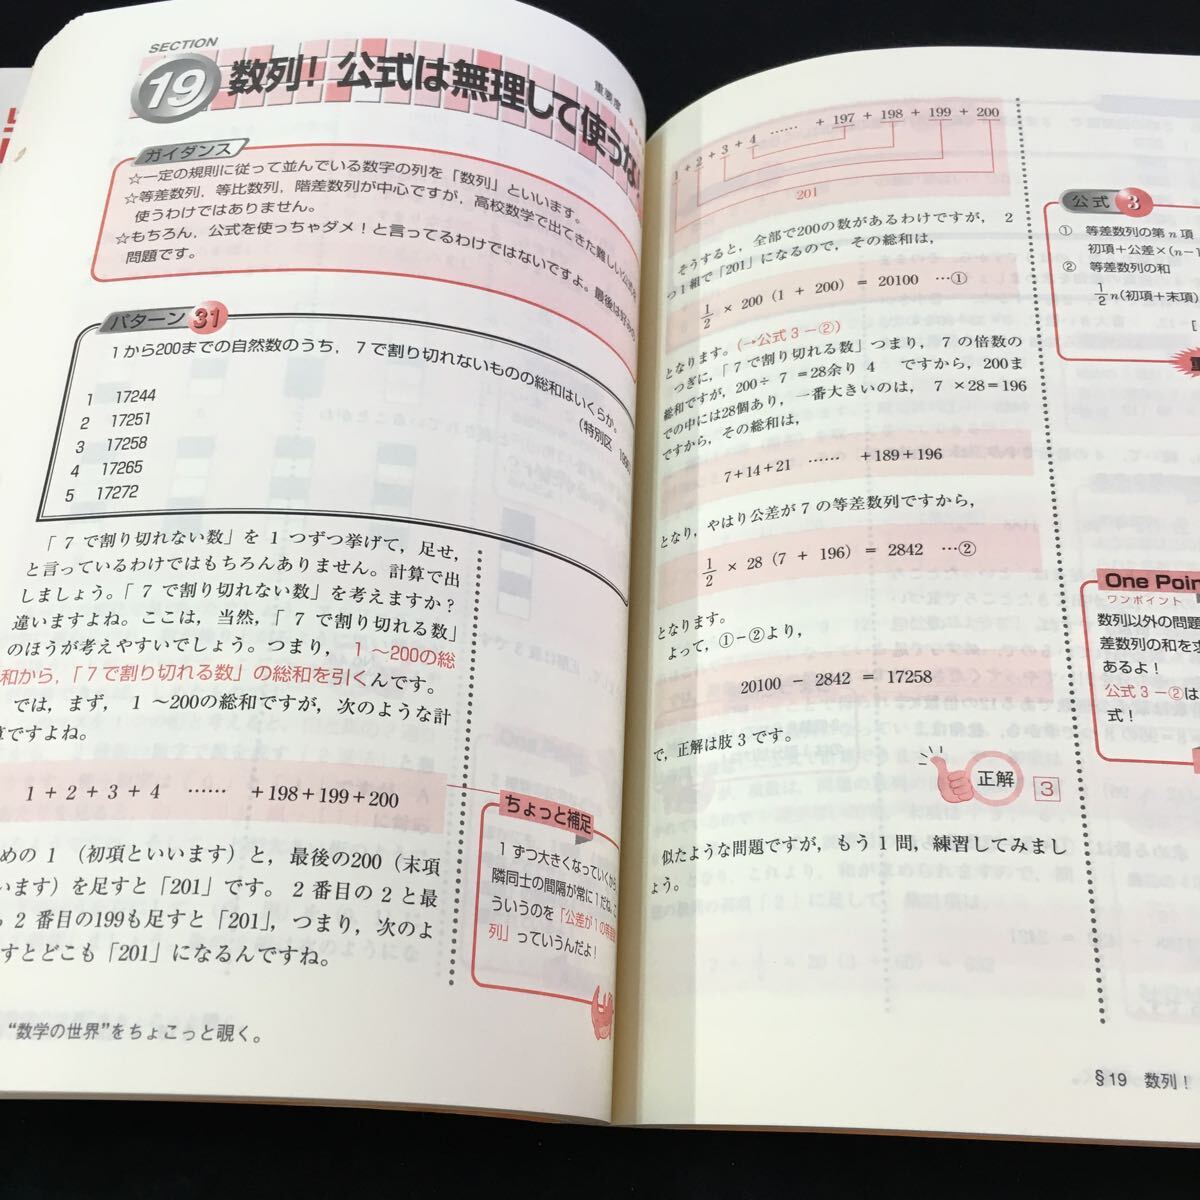 SECTION
19 数列! 公式は無理して使うな
重要度
ガイダンス
☆一定の規則に従って並んでいる数字の列を「数列」といいます。
☆等差数列，等比数列，階差数列が中心ですが，高校数学で出てきた難しい公式を
使うわけではありません。
☆もちろん，公式を使っちゃダメ！と言ってるわけではないですよ。最後は
問題です。
パターン 31
1から200までの自然数のうち，7で割り切れないものの総和はいくらか。
(特別区
1 17244
2 17251
3 17258
4 17265
5 17272
「7で割り切れない数」を1つずつ挙げて，足せ，
と言っているわけではもちろんありません。計算で出
しましょう。「7で割り切れない数」を考えますか？
違いますよね。ここは，当然，「7で割り切れる数」
のほうが考えやすいでしょう。つまり，1～200の総
和から，「7で割り切れる数」の総和を引くんです。
では，まず，1～200の総和ですが，次のような計
算ですよね。
1＋2＋3＋4 …… ＋198＋199＋200
めの1（初項といいます）と，最後の200（末項
います）を足すと「201」です。2番目の2と最
ら2番目の199も足すと「201」，つまり，次のよ
すとどこも「201」になるんですね。
ちょっと補足
1ずつ大きくなっていくから，
隣同士の間隔が常に1だね。こ
ういうのを「公差が1の等差数
列」っていうんだよ！
“数学の世界”をちょこっと覗く。
1＋2＋3＋4 …… ＋197＋198＋199＋200
201
そうすると，全部で200の数があるわけですが，2
つ1組で「201」になるので，その総和は，
1/2 × 200 (1 + 200) = 20100 …①
となります。(→公式3－②)
つぎに，「7で割り切れる数」つまり，7の倍数の
総和ですが，200÷7＝28余り4 ですから，200ま
での中には28個あり，一番大きいのは，7×28＝196
ですから，その総和は，
7＋14＋21 …… ＋189＋196
となり，やはり公差が7の等差数列ですから，
1/2 × 28 (7 + 196) = 2842 …②
となります。
よって，①－②より，
20100 － 2842 ＝ 17258
で，正解は肢3です。
正解 3
似たような問題ですが，もう1問，練習してみまし
ょう。
公式 3
① 等差数列の第n項
初項＋公差×(n－1
② 等差数列の和
1/2 n(初項＋末項)
One Poin
ワンポイント
数列以外の問題
差数列の和を求
あるよ！
公式3－②は
式！
§19 数列！